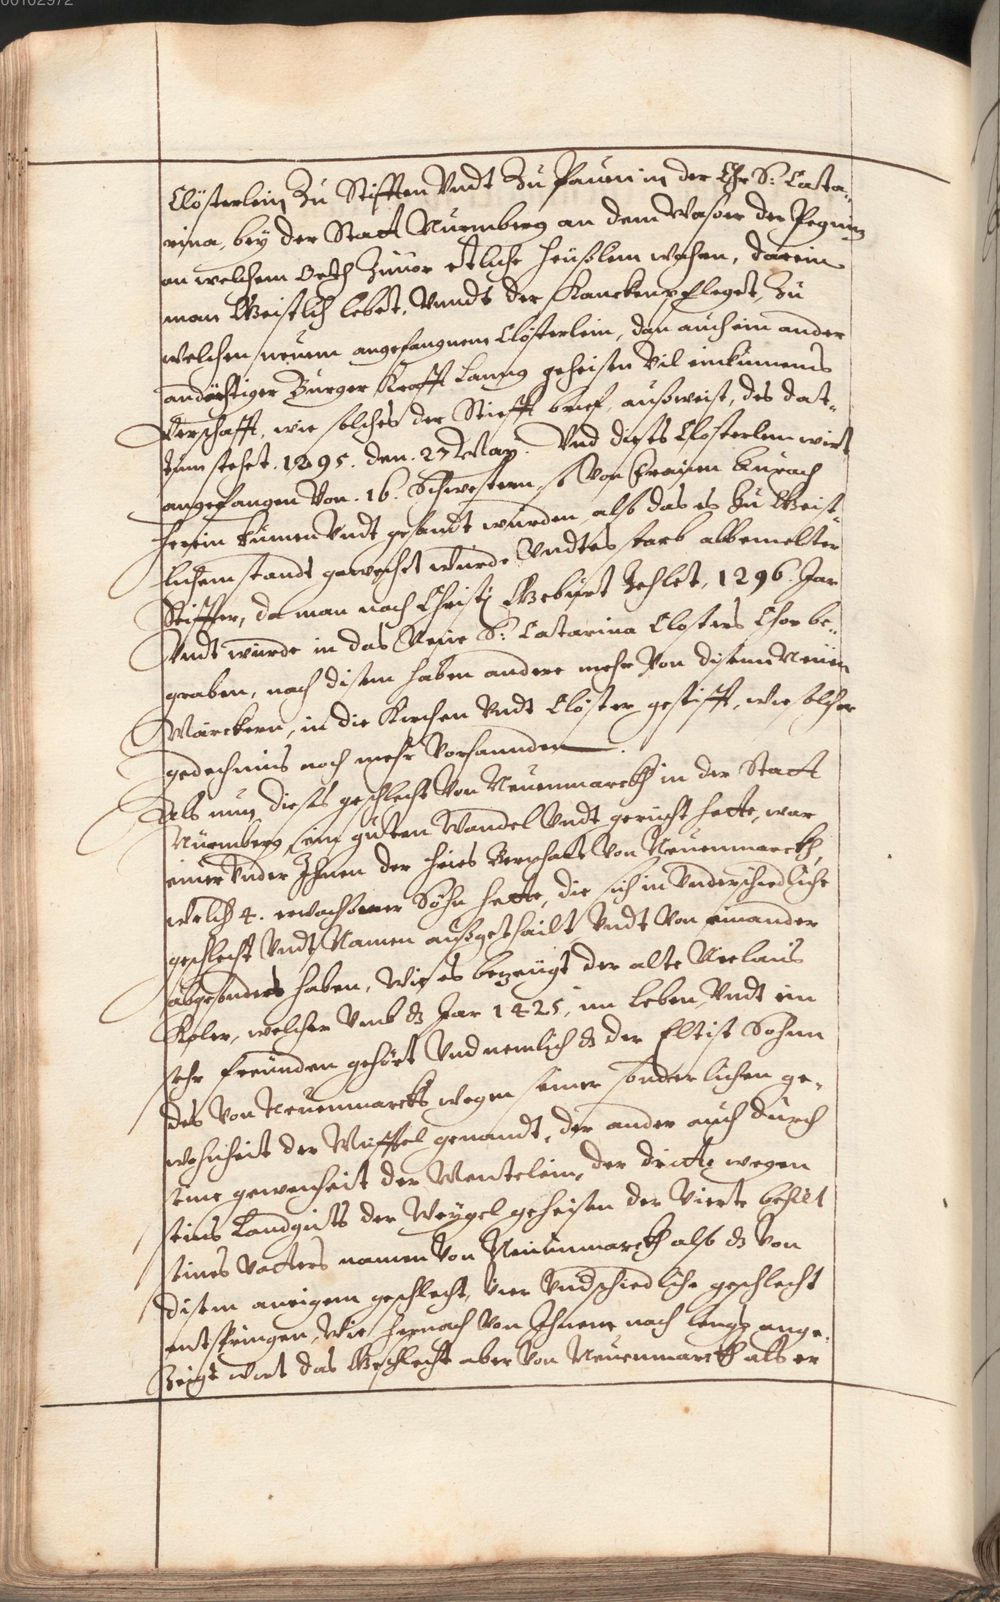 00102972
Clösterlein Zu Stifften Vndt Zu Pauen in der Ehr S: Cata-
rina, beÿ der Statt Nürmberg an dem Waßer der Pegnitz
an welchem Orth Zuuor etliche heüßlein wahren, darein
man Geistlich lebet, Vnndt der Kranckenpfleget, Zu
welchen neuem angefangnem Clösterlein, dan auch ein ander
andächtiger Burger Krafft Lanng geheisen Vil einkumens
Verschafft, wie solches der Stifft brief, außweist, des dat-
tum stehet. 1295. den. 27 Maÿ. Vnd dieses Closterlein wirt
angefangen Von. 16. Schwestern so Von Frauen Aurach
herein kumen Vndt gesandt wurden, alß das es Zu Geist-
lichem standt geweÿhet wurde Vndt es starb obbemelter
Stiffter, da man nach Christi Gebürt Zehlet, 1296. Jar
Vndt wurde in das Neue S: Catarina Closters Chor be-
graben, nach disem haben andere mehr Von disem Neuen
Marckern, in die Kirchen Vndt Closter gestifft, wie solcher
gedechtnus noch mehr Vorhannden.
Als nun dieses geschlecht Von Neuenmarckh in der Statt
Nürmberg, ein guten Wandel Vndt gerücht hette, war
einer Vnder Ihnen der hies Berchtolt Von Neuenmarckh,
welch 4. erwachsener Söhn hette, die sich in Vnderschiedliche
geschlecht Vndt Namen außgethailt Vndt Von einander
abgesondert haben, Wie es bezeügt der alte Niclaus
Koler, welcher Vmb dz Jar 1425, im Leben, Vndt ein
sehr freunden gehört Vnd nemlich dz der Eltist Sohnn
des Von Neuenmarcks wegen seiner sonderlichen ge-
wohnheit der Muffel genandt, der ander auch durch
seine gewonheit der Mentelein, der dritte wegen
seines Landguts der Weÿgel geheisen der Vierte behilt
seines Vatters namen Von Neuenmarckh alß dz Von
disem aneigem geschlecht, Vier Vndschiedliche geschlecht
entspringen, Wie hernach Von Ihnen nach lengs ange-
Zeigt wirt das Geschlecht aber Von Neuenmarckh als er